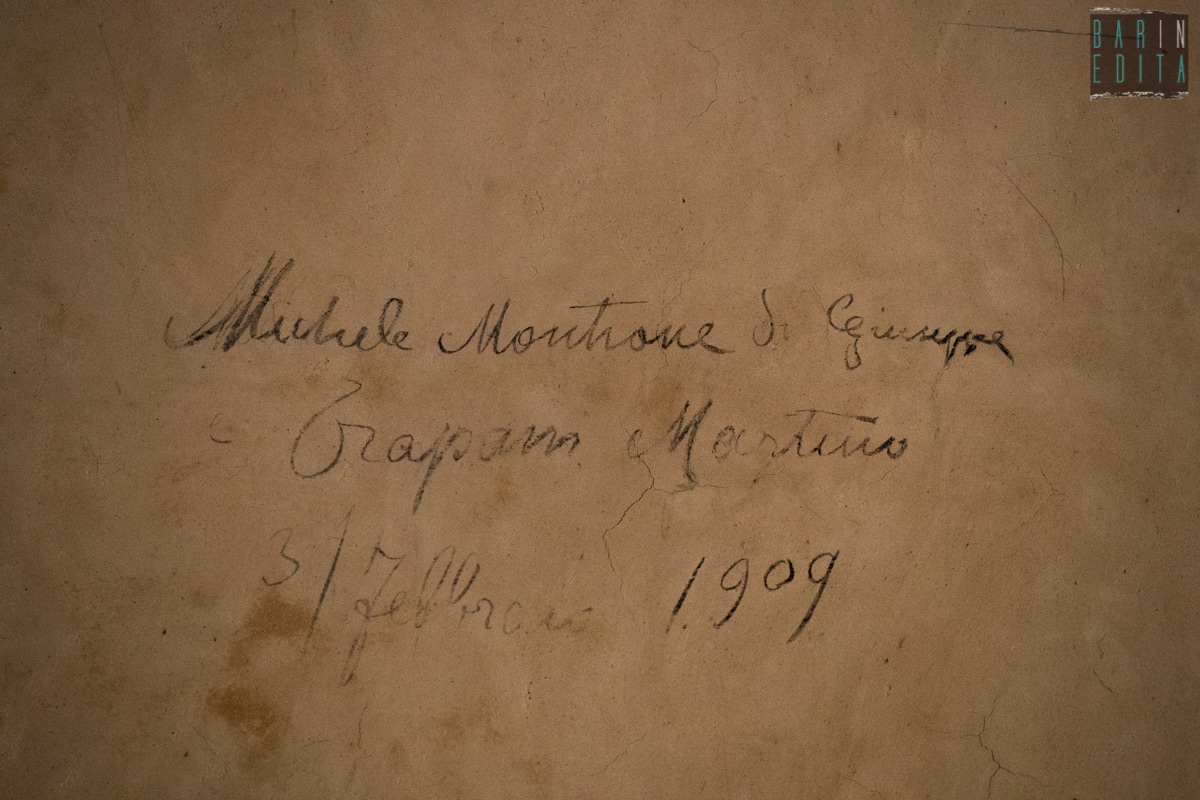 BARIN
EDITA
Michele Montrone di Giuseppe
e Trapani Martino
3/Febbraio 1909